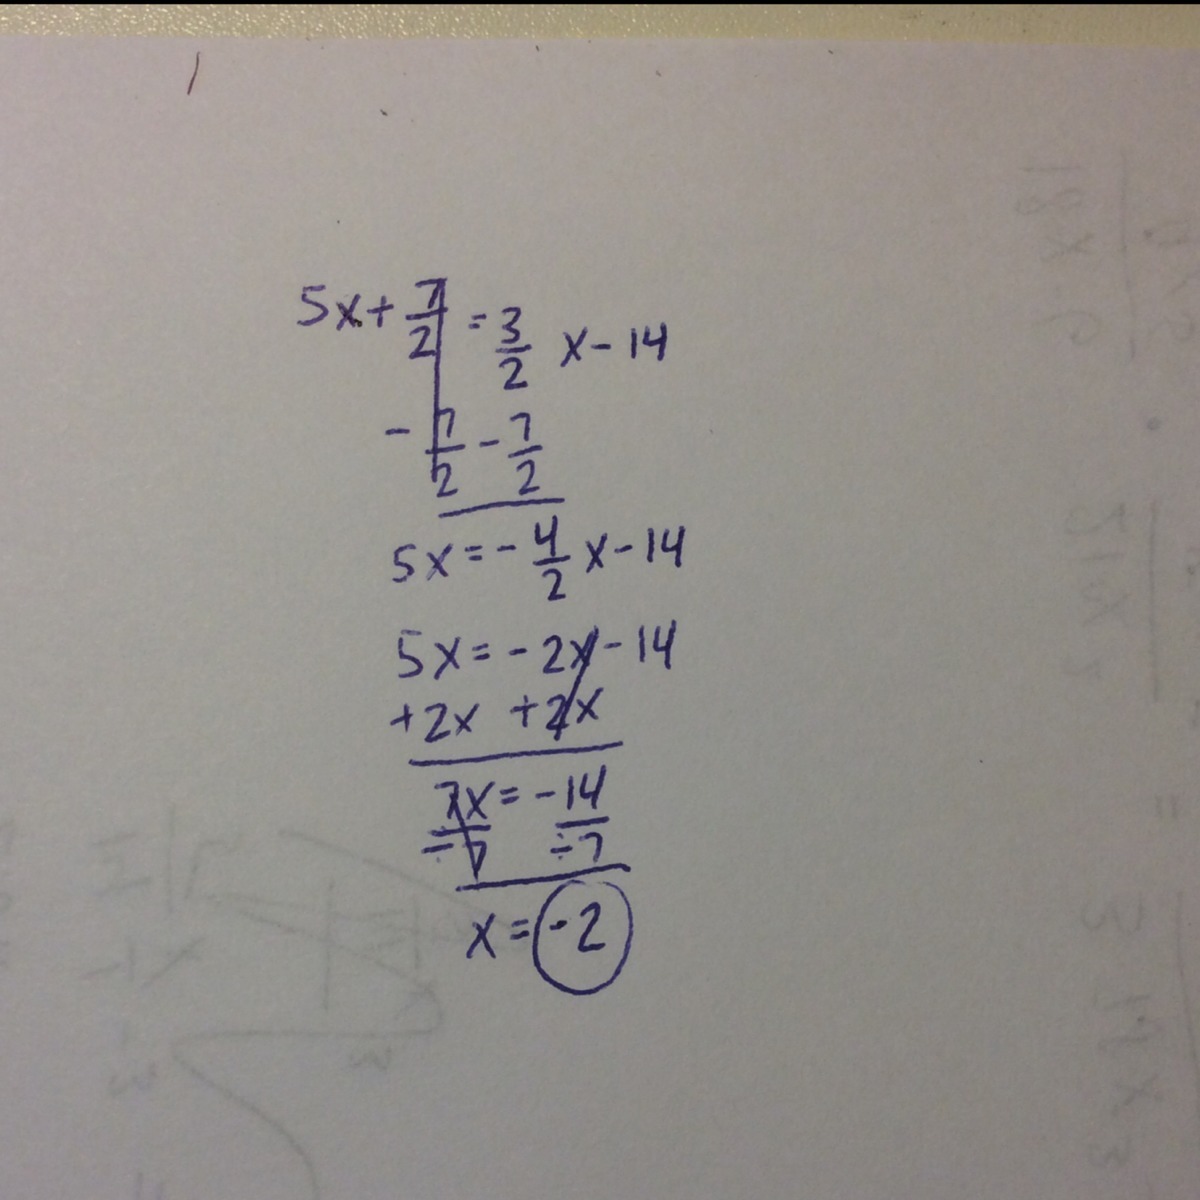 5x + 7/2 = 3/2 x - 14
- 7/2 - 7/2
5x = - 4/2 x - 14
5x = - 2x - 14
+ 2x + 2x
7x = - 14
÷7 ÷7
x = -2